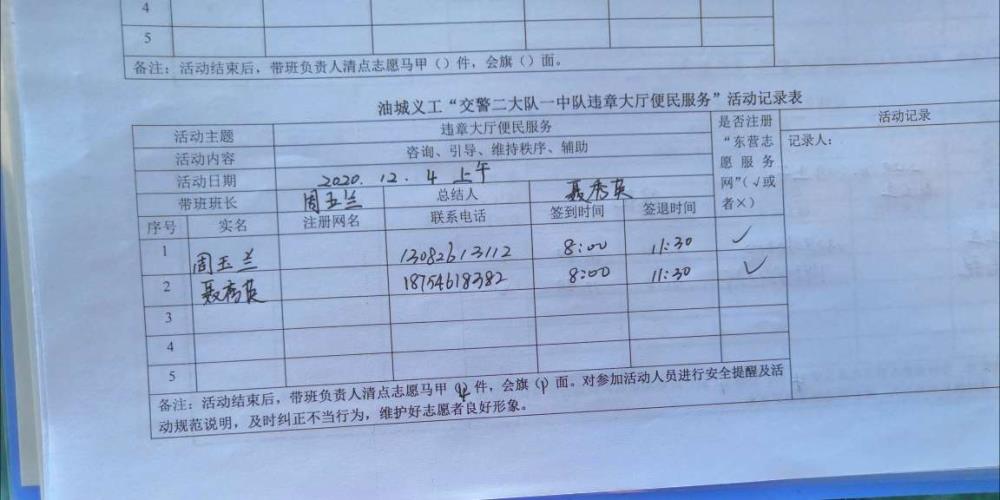 4
5
备注：活动结束后，带班负责人清点志愿马甲（）件，会旗（）面。
油城义工“交警二大队一中队违章大厅便民服务”活动记录表
活动主题 违章大厅便民服务 是否注册“东营志愿服务网”（√或者×） 活动记录
活动内容 咨询、引导、维持秩序、辅助 记录人：
活动日期 2020.12.4 上午
带班班长 周玉兰 总结人 聂秀英
序号 实名 注册网名 联系电话 签到时间 签退时间
1 周玉兰 13082613112 8:00 11:30 √
2 聂秀英 18754618382 8:00 11:30 √
3
4
5
备注：活动结束后，带班负责人清点志愿马甲（4）件，会旗（1）面。对参加活动人员进行安全提醒及活
动规范说明，及时纠正不当行为，维护好志愿者良好形象。